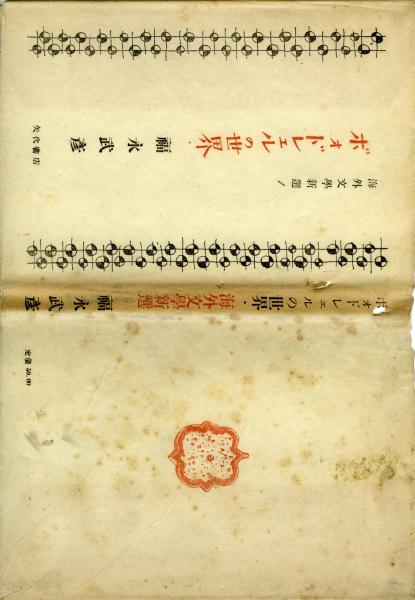 海外文學新選 1
ボオドレエルの世界・
福永武彦
矢代書店
ボオドレエルの世界・海外文學新選 福永武彦
定價 50.00